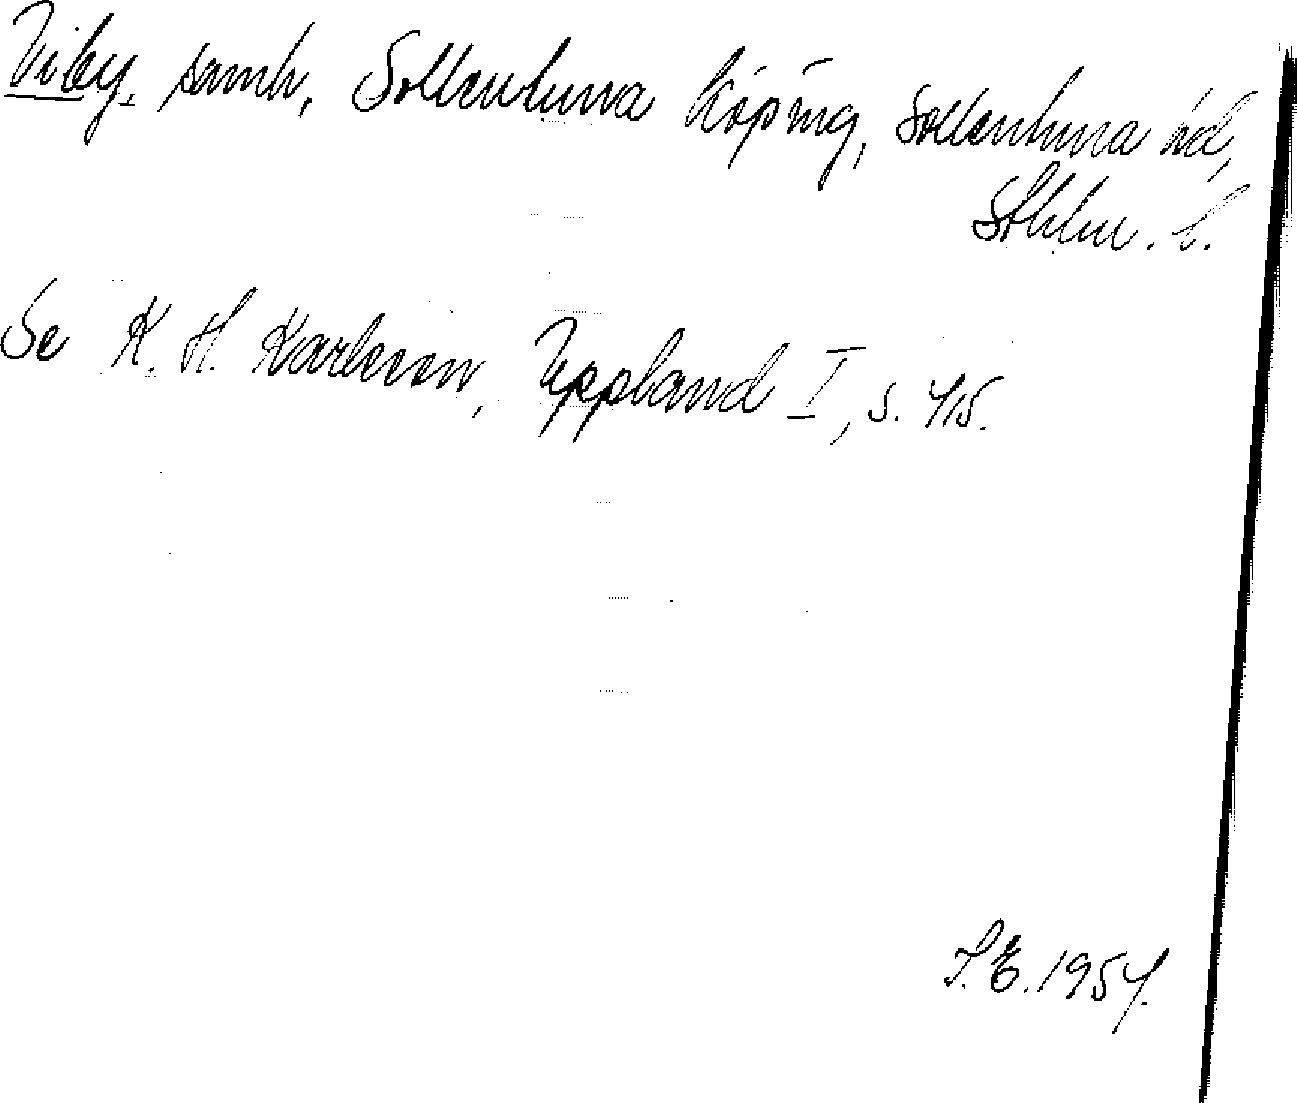 Viby, samh, Sollentuna köping, Sollentuna hd,
Sthlm. l.
Se K. H. Karlsson, Uppland I, s. 415.
S.E. 1954.